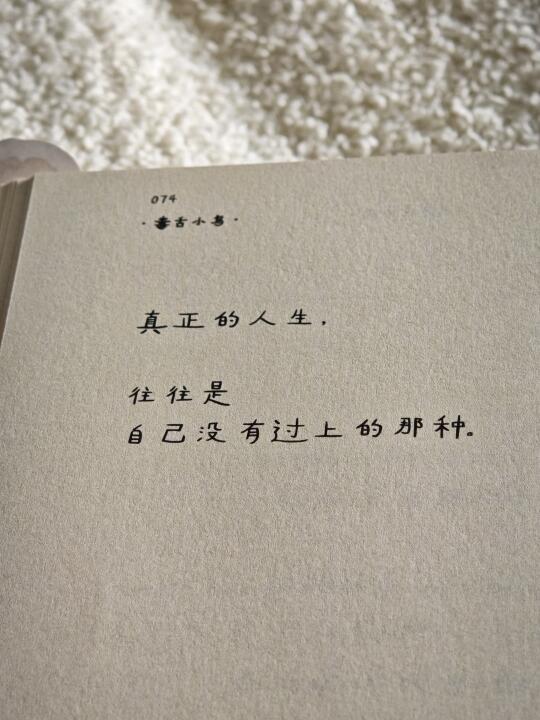 074
·毒舌小鸟·
真正的人生，
往往是
自己没有过上的那种。